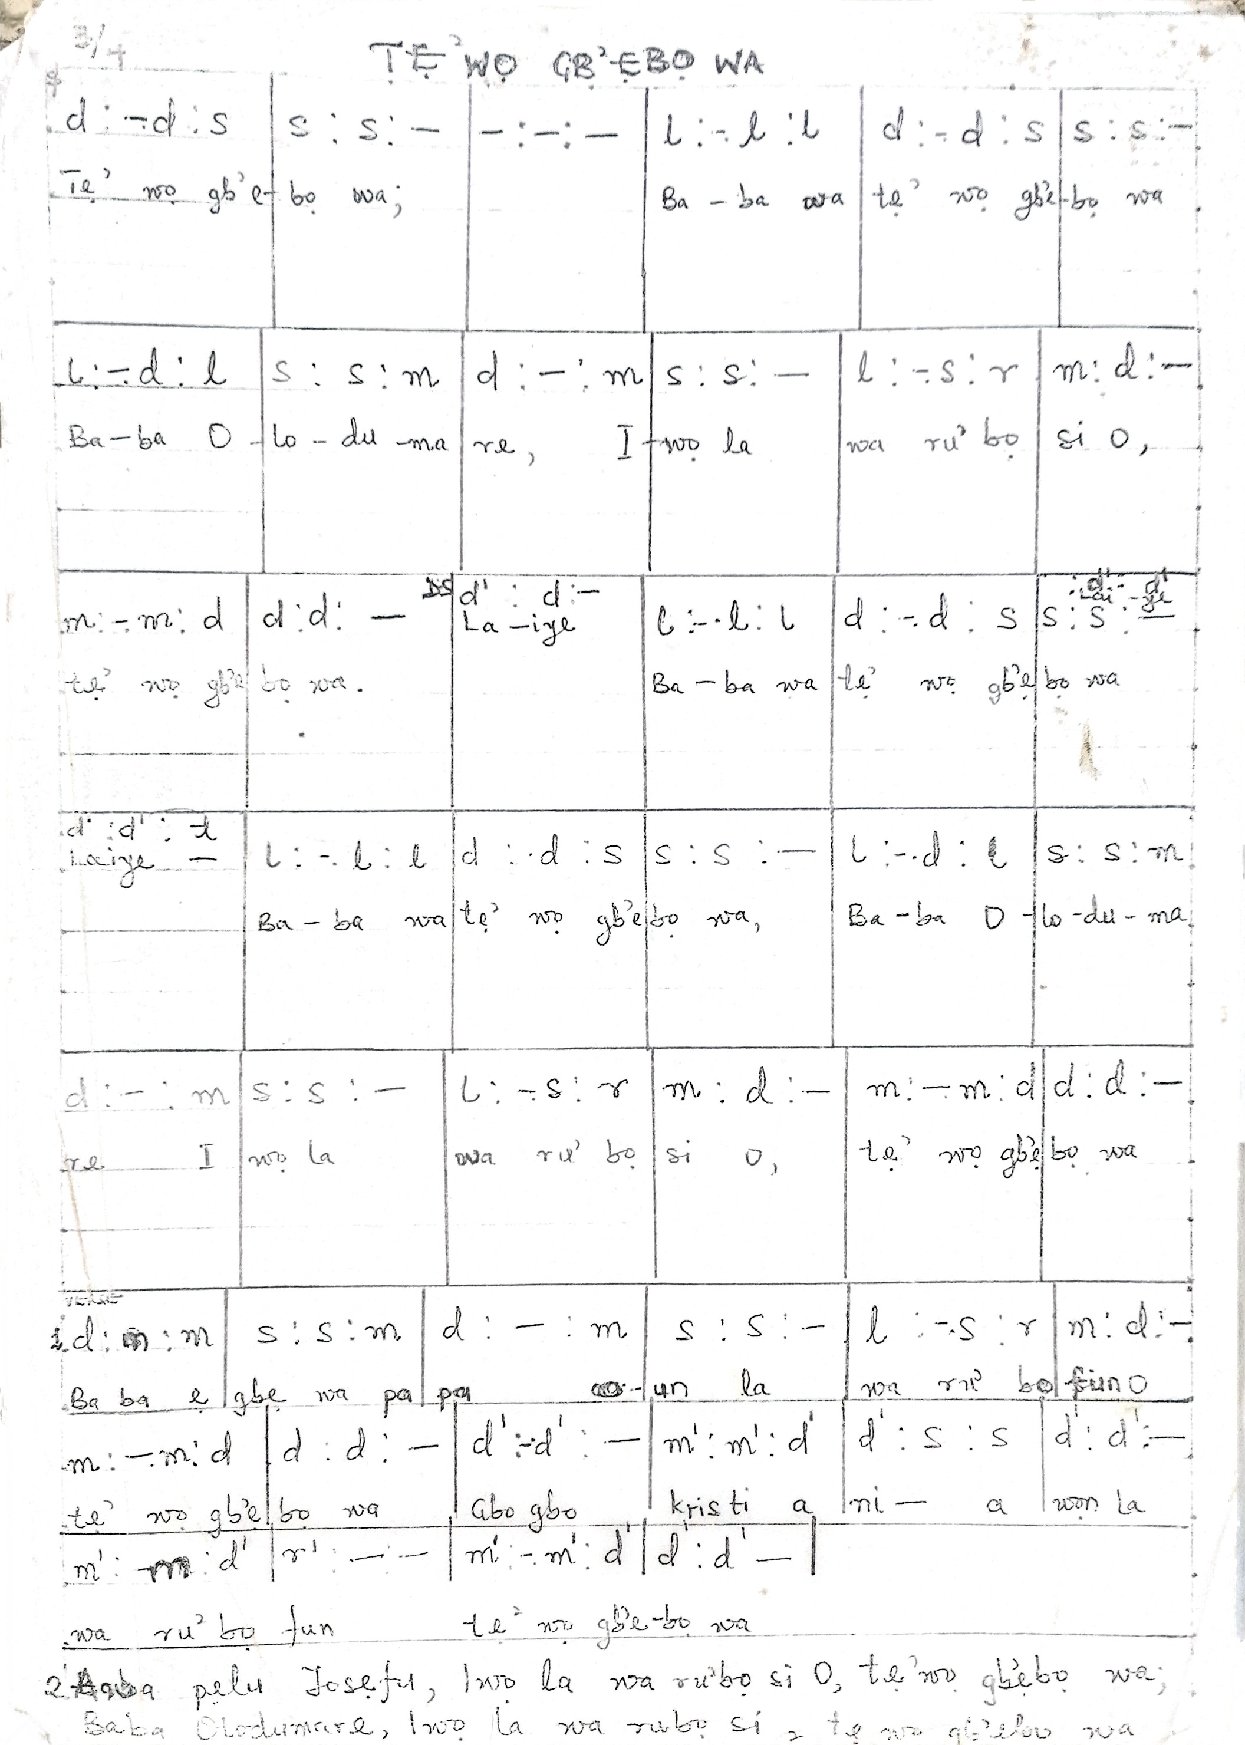 3/4
TẸ' WỌ GB'ẸBỌ WA
d : -.d : s | s : s : — | - : - : — | l : -. l : l | d : -. d : s | s : s : —
Tẹ' wọ gb'ẹ- bọ wa; Ba - ba wa tẹ' wọ gb'ẹ- bọ wa
l : -. d : l | s : s : m | d : - : m | s : s : — | l : -. s : r | m : d : —
Ba - ba O - lo - du - ma re, I - wọ la wa ru' bọ si O,
m : -. m : d | d : d : — DS | d' : d : - | l : -. l : l | d : -. d : s | s : s : — : d' - d'
La - iye Lai - ye
tẹ' wọ gb'ẹ bọ wa. Ba - ba wa tẹ' wọ gb'ẹ bọ wa
d' : d' : t | l : -. l : l | d : -. d : s | s : s : — | l : -. d : l | s : s : m
Laiye — Ba - ba wa tẹ' wọ gb'ẹ bọ wa, Ba - ba O - lo - du - ma
d : - : m | s : s : — | l : -. s : r | m : d : - | m : -. m : d | d : d : —
re I wọ la wa ru' bọ si o, tẹ' wọ gb'ẹ bọ wa
verse
1. d : m : m | s : s : m | d : — : m | s : s : - | l : -. s : r | m : d : -
Ba ba ẹ gbẹ wa pa pa un la wa ru' bọ fun O
m : -. m : d | d : d : — | d' : -. d' : — | m' : m' : d' | d' : s : s | d' : d' : —
tẹ' wọ gb'ẹ bọ wa Gbo gbo kristi a ni — a wọn la
m' : -. m : d' | r' : — : — | m' : -. m' : d' | d' : d' — |
wa ru' bọ fun tẹ' wọ gb'ẹ-bọ wa
2 pẹlu Josẹfu, Iwọ la wa ru'bọ si O, tẹ'wọ gb'ẹbọ wa;
Baba Olodumare, Iwọ la wa rubọ si, tẹ wọ gb'ẹbọ wa